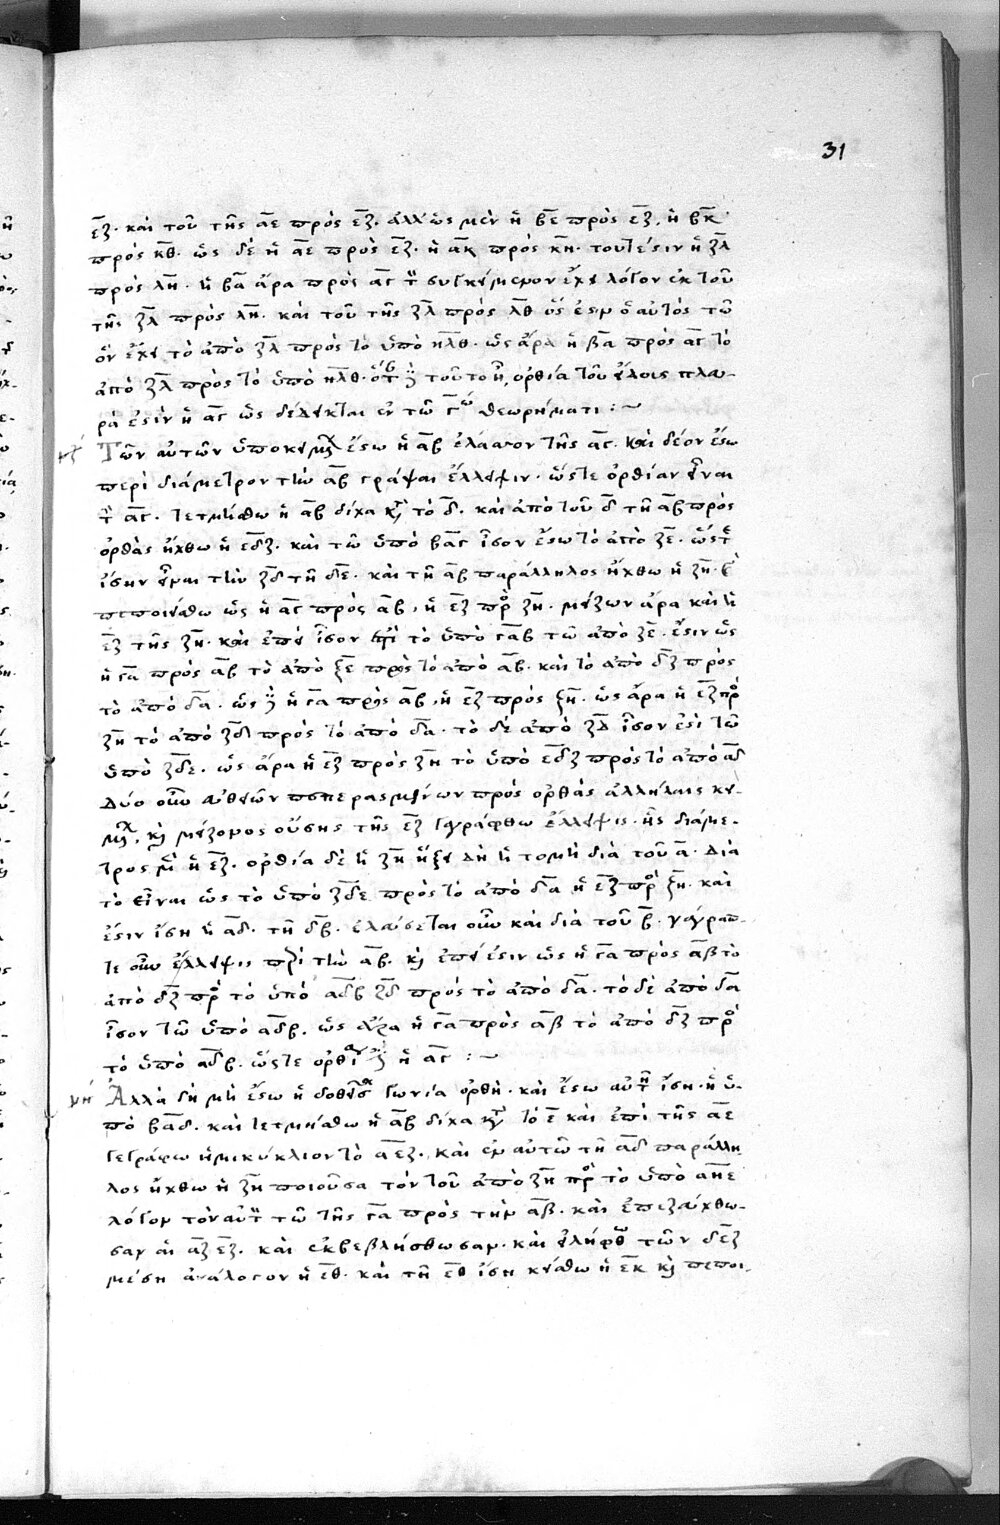 31
εζ. καὶ τοῦ τῆς αε πρὸς εζ. ἀλλ' ὡς μὲν ἡ βε πρὸς εζ. ἡ βκ
πρὸς κθ. ὡς δὲ ἡ αε πρὸς εζ. ἡ ακ πρὸς κη. τουτέστιν ἡ ζλ
πρὸς λη. ἡ βα ἄρα πρὸς αγ τὸν συγκείμενον ἔχει λόγον ἐκ τοῦ
τῆς ζλ πρὸς λη. καὶ τοῦ τῆς ζλ πρὸς λθ ὅς ἐστιν ὁ αὐτὸς τῶ
ὃν ἔχει τὸ ἀπὸ ζλ πρὸς τὸ ὑπὸ ηλθ. ὡς ἄρα ἡ βα πρὸς αγ τὸ
ἀπὸ ζλ πρὸς τὸ ὑπὸ ηλθ. ὅταν δὲ τοῦτο ἦ, ὀρθία τοῦ εἴδους πλευ-
ρά ἐστιν ἡ αγ ὡς δέδεικται ἐν τῶ ιγω θεωρήματι :~
νζ Τῶν αὐτῶν ὑποκειμένων ἔστω ἡ αβ ἐλάσσον τῆς αγ. καὶ δέον ἔστω
περὶ διάμετρον τὴν αβ γράψαι ἔλλειψιν. ὥστε ὀρθίαν εἶναι
τὴν αγ. τετμήσθω ἡ αβ δίχα κατὰ τὸ δ. καὶ ἀπὸ τοῦ δ τῆ αβ πρὸς
ὀρθὰς ἤχθω ἡ εδζ. καὶ τῶ ὑπὸ βαγ ἴσον ἔστω τὸ ἀπὸ ζε. ὥστε
ἴσην εἶναι τὴν ζδ τῆ δε. καὶ τῆ αβ παράλληλος ἤχθω ἡ ζη. καὶ
πεποιήσθω ὡς ἡ αγ πρὸς αβ, ἡ εζ πρὸς ζη. μείζων ἄρα καὶ ἡ
εζ τῆς ζη. καὶ ἐπεὶ ἴσον ἐστὶ τὸ ὑπὸ γαβ τῶ ἀπὸ ζε. ἔστιν ὡς
ἡ γα πρὸς αβ τὸ ἀπὸ ζε πρὸς τὸ ἀπὸ αβ. καὶ τὸ ἀπὸ δζ πρὸς
τὸ ἀπὸ δα. ὡς δὲ ἡ γα πρὸς αβ, ἡ εζ πρὸς ζη. ὡς ἄρα ἡ εζ πρὸς
ζη τὸ ἀπὸ ζδ πρὸς τὸ ἀπὸ δα. τὸ δὲ ἀπὸ ζδ ἴσον ἐστὶ τῶ
ὑπὸ ζδε. ὡς ἄρα ἡ εζ πρὸς ζη τὸ ὑπὸ εδζ πρὸς τὸ ἀπὸ αδ
δύο οὖν εὐθειῶν πεπερασμένων πρὸς ὀρθὰς ἀλλήλαις κει-
μένων, καὶ μείζονος οὔσης τῆς εζ γεγράφθω ἔλλειψις. ἧς διάμε-
τρος μὲν ἡ εζ. ὀρθία δὲ ἡ ζη ἥξει δὴ ἡ τομὴ διὰ τοῦ α. διὰ
τὸ εἶναι ὡς τὸ ὑπὸ ζδε πρὸς τὸ ἀπὸ δα ἡ εζ πρὸς ζη. καὶ
ἐστιν ἴση ἡ αδ. τῆ δβ. ἐλεύσεται οὖν καὶ διὰ τοῦ β. γέγραπ-
ται οὖν ἔλλειψις περὶ τὴν αβ. καὶ ἐπεί ἐστιν ὡς ἡ γα πρὸς αβ τὸ
ἀπὸ δζ πρὸς τὸ ὑπὸ αδβ ζδ πρὸς τὸ ἀπὸ δα. τὸ δὲ ἀπὸ δα
ἴσον τῶ ὑπὸ αδβ. ὡς ἄρα ἡ γα πρὸς αβ τὸ ἀπὸ δζ πρὸς
τὸ ὑπὸ αδβ. ὥστε ὀρθία ἐστὶν ἡ αγ :~
νη Ἀλλὰ δὴ μὴ ἔστω ἡ δοθεῖσα γωνία ὀρθή. καὶ ἔστω αὐτῆ ἴση. ἡ ὑ-
πὸ βαδ. καὶ τετμήσθω ἡ αβ δίχα κατὰ τὸ ε καὶ ἐπὶ τῆς αε
γεγράφθω ἡμικύκλιον τὸ αεζ. καὶ ἐν αὐτῶ τῆ αδ παράλλη
λος ἤχθω ἡ ζη ποιοῦσα τὸν τοῦ ἀπὸ ζη πρὸς τὸ ὑπὸ αηε
λόγον τὸν αὐτὸν τῶ τῆς γα πρὸς τὴν αβ. καὶ ἐπεζεύχθω-
σαν αἱ αζ εζ. καὶ ἐκβεβλήσθωσαν. καὶ εἰλήφθω τῶν δεζ
μέση ἀνάλογον ἡ εθ. καὶ τῆ εθ ἴση κείσθω ἡ εκ καὶ πεποι-